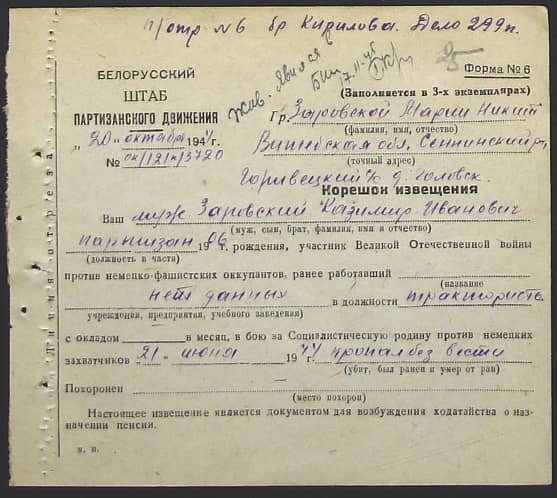 п/отр №6 бр Кирилова. Дело 299п.
Жив. Явился в
17.11.45
25
БЕЛОРУССКИЙ
ШТАБ
ПАРТИЗАНСКОГО ДВИЖЕНИЯ
„20" октября 1944 г.
№ ок/121п/3720
Форма № 6
(Заполняется в 3-х экземплярах)
Гр. Заровской Марии Никит
(фамилия, имя, отчество)
Витебская обл, Сеннинский р,
(точный адрес)
д. Головск.
Корешок извещения
Ваш муж Заровский Казимир Иванович
(муж, сын, брат, фамилия, имя и отчество)
партизан 1906 рождения, участник Великой Отечественной войны
(должность в части)
против немецко-фашистских оккупантов, ранее работавший
(название
нет данных в должности тракториста
учреждения, предприятия, учебного заведения)
с окладом в месяц, в бою за Социалистическую родину против немецких
захватчиков 21 - июня 1944 г. пропал без вести
(убит, был ранен и умер от ран)
Похоронен
(место похорон)
Настоящее извещение является документом для возбуждения ходатайства о наз-
начении пенсии.
м. п.
Линия отреза